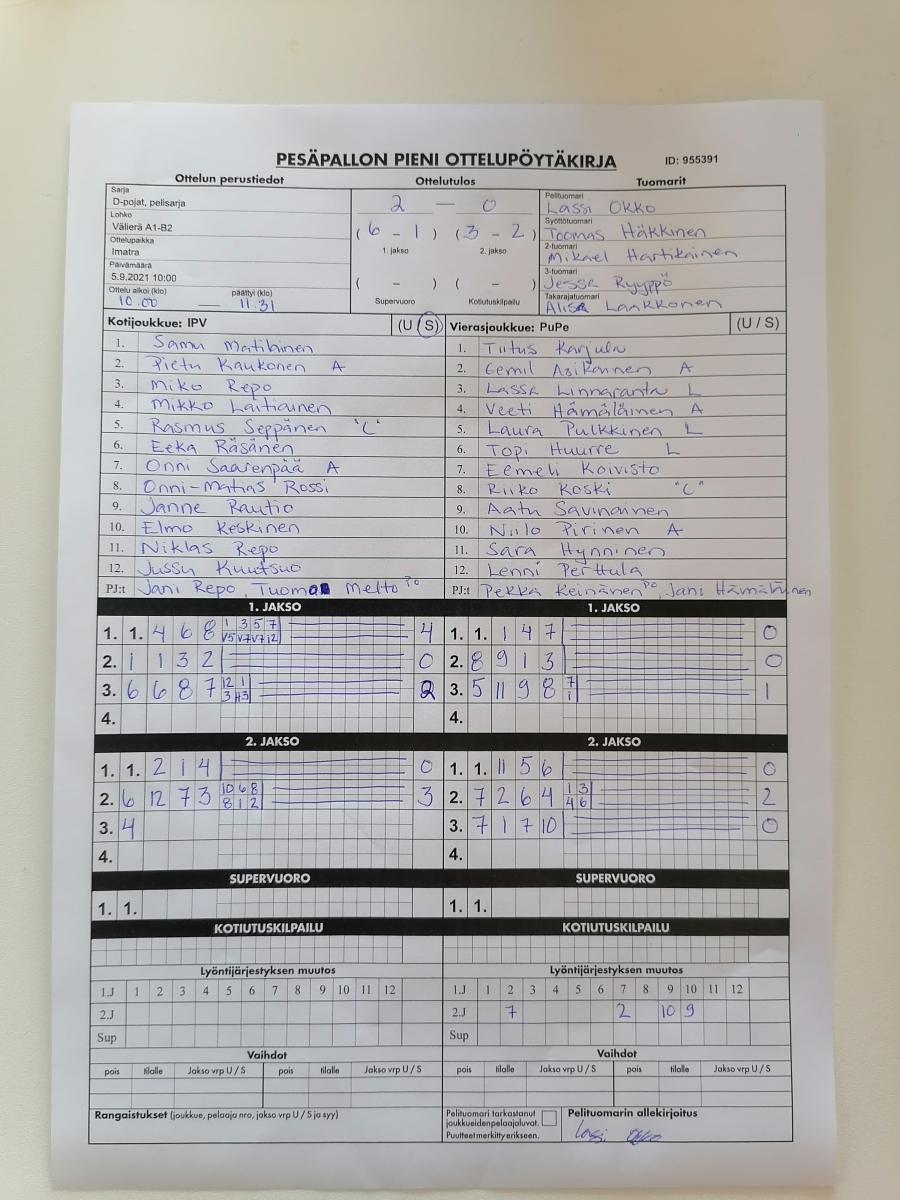 PESÄPALLON PIENI OTTELUPÖYTÄKIRJA ID: 955391
Ottelun perustiedot Ottelutulos Tuomarit
Sarja
D-pojat, pelisarja
Lohko
Välierä A1-B2
Ottelupaikka
Imatra
Päivämäärä
5.9.2021 10:00
Ottelu alkoi (klo) päättyi (klo)
10.00 — 11.31
2 — 0
(6 - 1) (3 - 2)
1. jakso 2. jakso
( - ) ( - )
Supervuoro Kotiutuskilpailu
Pelituomari
Lassi Okko
Syöttötuomari
Toomas Häkkinen
2-tuomari
Mikael Hartikainen
3-tuomari
Jesse Ryyppö
Takarajatuomari
Alisa Laakkonen
Kotijoukkue: IPV (U / S)
1. Samu Matilainen
2. Pietu Kaukonen A
3. Miko Repo
4. Mikko Laitiainen
5. Rasmus Seppänen "C"
6. Eeka Räsänen
7. Onni Saarenpää A
8. Onni-Matias Rossi
9. Janne Rautio
10. Elmo Keskinen
11. Niklas Repo
12. Jussu Kuutsuo
PJ:t Jani Repo, Tuomo Melto PO
Vierasjoukkue: PuPe (U / S)
1. Tiitus Karjula
2. Eemil Asikainen A
3. Lassa Linnaranta L
4. Veeti Hämäläinen A
5. Laura Pulkkinen L
6. Topi Huurre L
7. Eemeli Koivisto
8. Riiko Koski "C"
9. Aatu Savinainen
10. Niilo Pirinen A
11. Sara Hynninen
12. Lenni Perttula
PJ:t Pekka Keinänen PO, Jani Hämäläinen
1. JAKSO
1. 1. 4 6 8 1 3 5 7 4
V5 V7 V7 12
2. 1 1 3 2 0
3. 6 6 8 7 12 1 2
4.
1. JAKSO
1. 1. 1 4 7 0
2. 8 9 1 3 0
3. 5 11 9 8 7 1
1
4.
2. JAKSO
1. 1. 2 1 4 0
2. 6 12 7 3 10 6 8 3
8 1 2
3. 4
4.
2. JAKSO
1. 1. 11 5 6 0
2. 7 2 6 4 1 3 2
4 6
3. 7 1 7 10 0
4.
SUPERVUORO SUPERVUORO
1. 1. 1. 1.
KOTIUTUSKILPAILU KOTIUTUSKILPAILU
Lyöntijärjestyksen muutos Lyöntijärjestyksen muutos
1.J 1 2 3 4 5 6 7 8 9 10 11 12 1.J 1 2 3 4 5 6 7 8 9 10 11 12
2.J 2.J 7 2 10 9
Sup Sup
Vaihdot Vaihdot
pois tilalle Jakso vrp U / S pois tilalle Jakso vrp U / S pois tilalle Jakso vrp U / S pois tilalle Jakso vrp U / S
Rangaistukset (joukkue, pelaaja nro, jakso vrp U / S ja syy)
Pelituomari tarkastanut
joukkueidenpelaajaluvat.
Puutteetmerkitty erikseen.
Pelituomarin allekirjoitus
Lassi Okko